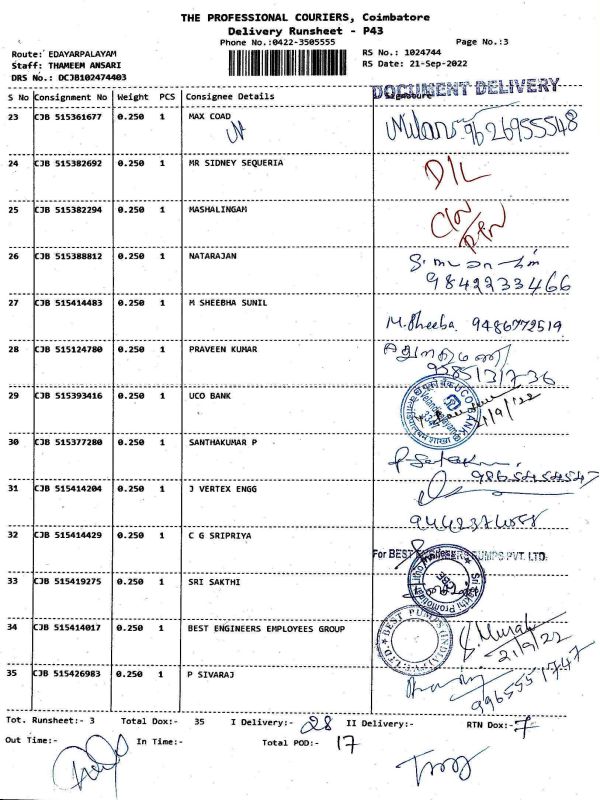 THE PROFESSIONAL COURIERS, Coimbatore
Delivery Runsheet - P43
Phone No.:0422-3505555
Page No.:3
Route: EDAYARPALAYAM
Staff: THAMEEM ANSARI
DRS No.: DCJB102474403
RS No.: 1024744
RS Date: 21-Sep-2022
DOCUMENT DELIVERY
S No Consignment No Weight PCS Consignee Details Signature
23 CJB 515361677 0.250 1 MAX COAD 9626955548
24 CJB 515382692 0.250 1 MR SIDNEY SEQUERIA D/L
25 CJB 515382294 0.250 1 MASHALINGAM
26 CJB 515388812 0.250 1 NATARAJAN
9842233466
27 CJB 515414483 0.250 1 M SHEEBHA SUNIL M.Sheeba. 9486772519
28 CJB 515124780 0.250 1 PRAVEEN KUMAR
29 CJB 515393416 0.250 1 UCO BANK 21/9/22
30 CJB 515377280 0.250 1 SANTHAKUMAR P
9865454547
31 CJB 515414204 0.250 1 J VERTEX ENGG
32 CJB 515414429 0.250 1 C G SRIPRIYA
For BEST ENGINEERS PUMPS PVT. LTD.
33 CJB 515419275 0.250 1 SRI SAKTHI
34 CJB 515414017 0.250 1 BEST ENGINEERS EMPLOYEES GROUP
21/9/22
35 CJB 515426983 0.250 1 P SIVARAJ 9965551747
Tot. Runsheet:- 3 Total Dox:- 35 I Delivery:- 28 II Delivery:- RTN Dox:- 7
Out Time:- In Time:- Total POD:- 17